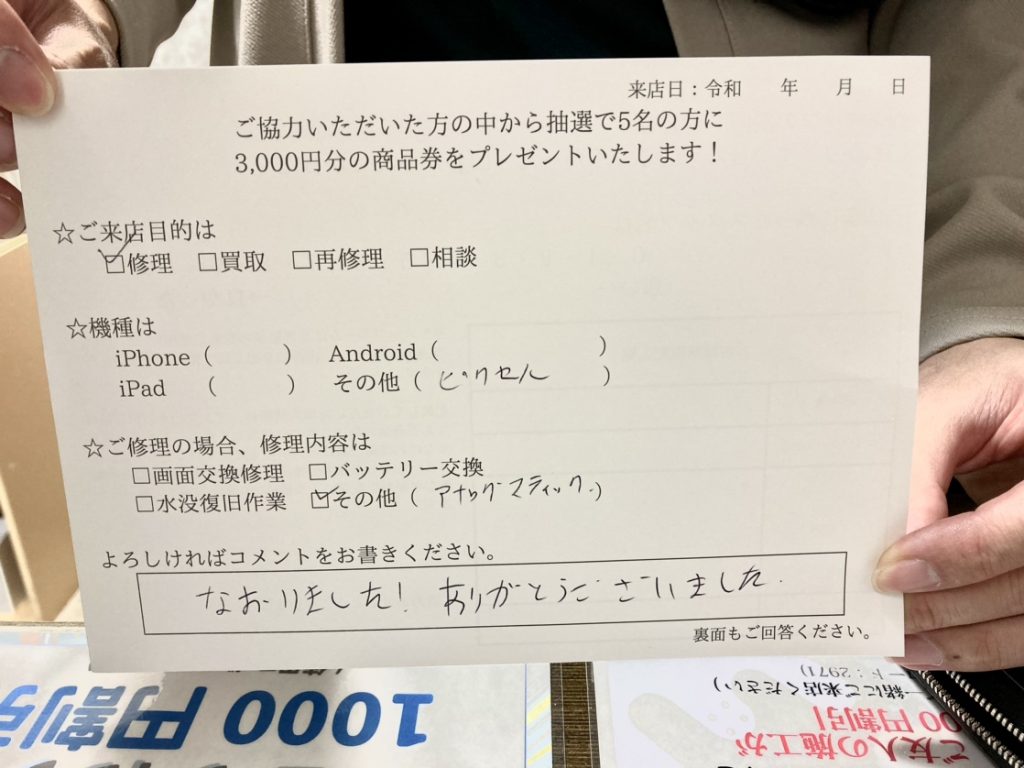 来店日：令和　　年　　月　　日
ご協力いただいた方の中から抽選で5名の方に
3,000円分の商品券をプレゼントいたします！
☆ご来店目的は
☑修理　□買取　□再修理　□相談
☆機種は
iPhone（　　　）　Android（　　　　　　　）
iPad　（　　　）　その他（ ピクセル　　）
☆ご修理の場合、修理内容は
□画面交換修理　□バッテリー交換
□水没復旧作業　☑その他（ アナックマティック.）
よろしければコメントをお書きください。
なおりました！ ありがとうございました.
裏面もご回答ください。
1000円割引
ード：2971)
一緒にご来店ください)
00円割引
ご友人の施工が